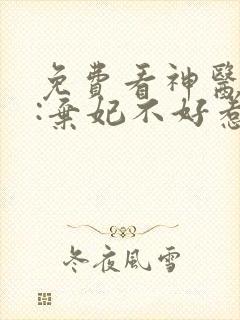 免費看神醫
:棄妃不好惹
冬夜風雪